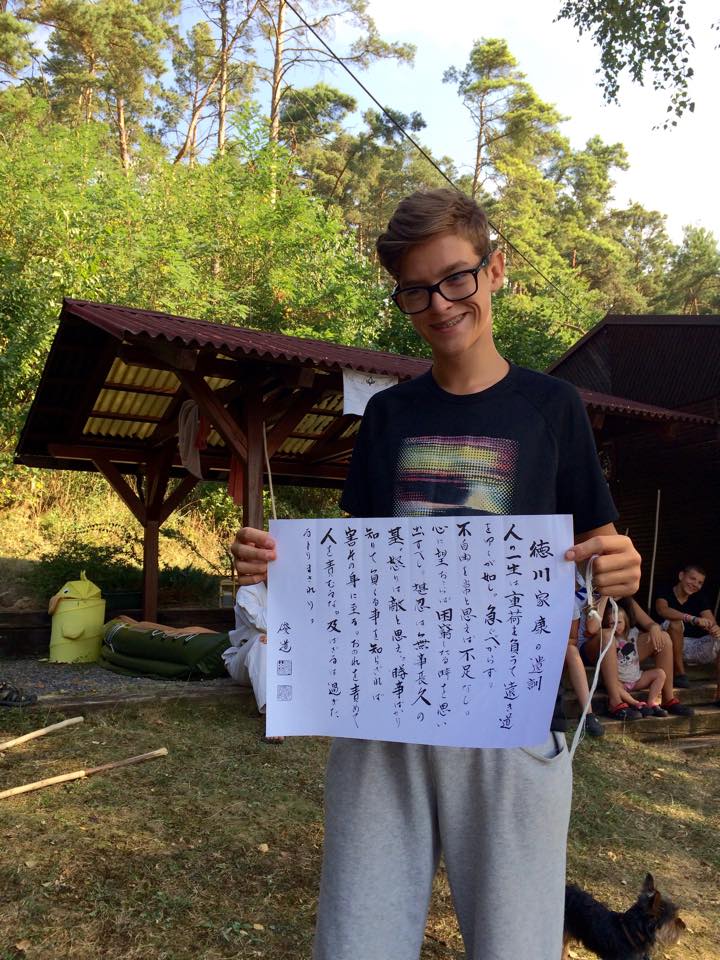 徳川家康の遺訓
人の一生は重荷を負うて遠き道
をゆくが如し。急ぐべからず。
不自由を常と思えば不足なし。
心に望おこらば困窮したる時を思い
出すべし。堪忍は無事長久の
基。怒りは敵と思え。勝事ばかり
知りて負くる事を知らざれば
害其の身に至る。おのれを責めて
人を責むるな。及ばざるは過ぎた
るよりまされり。